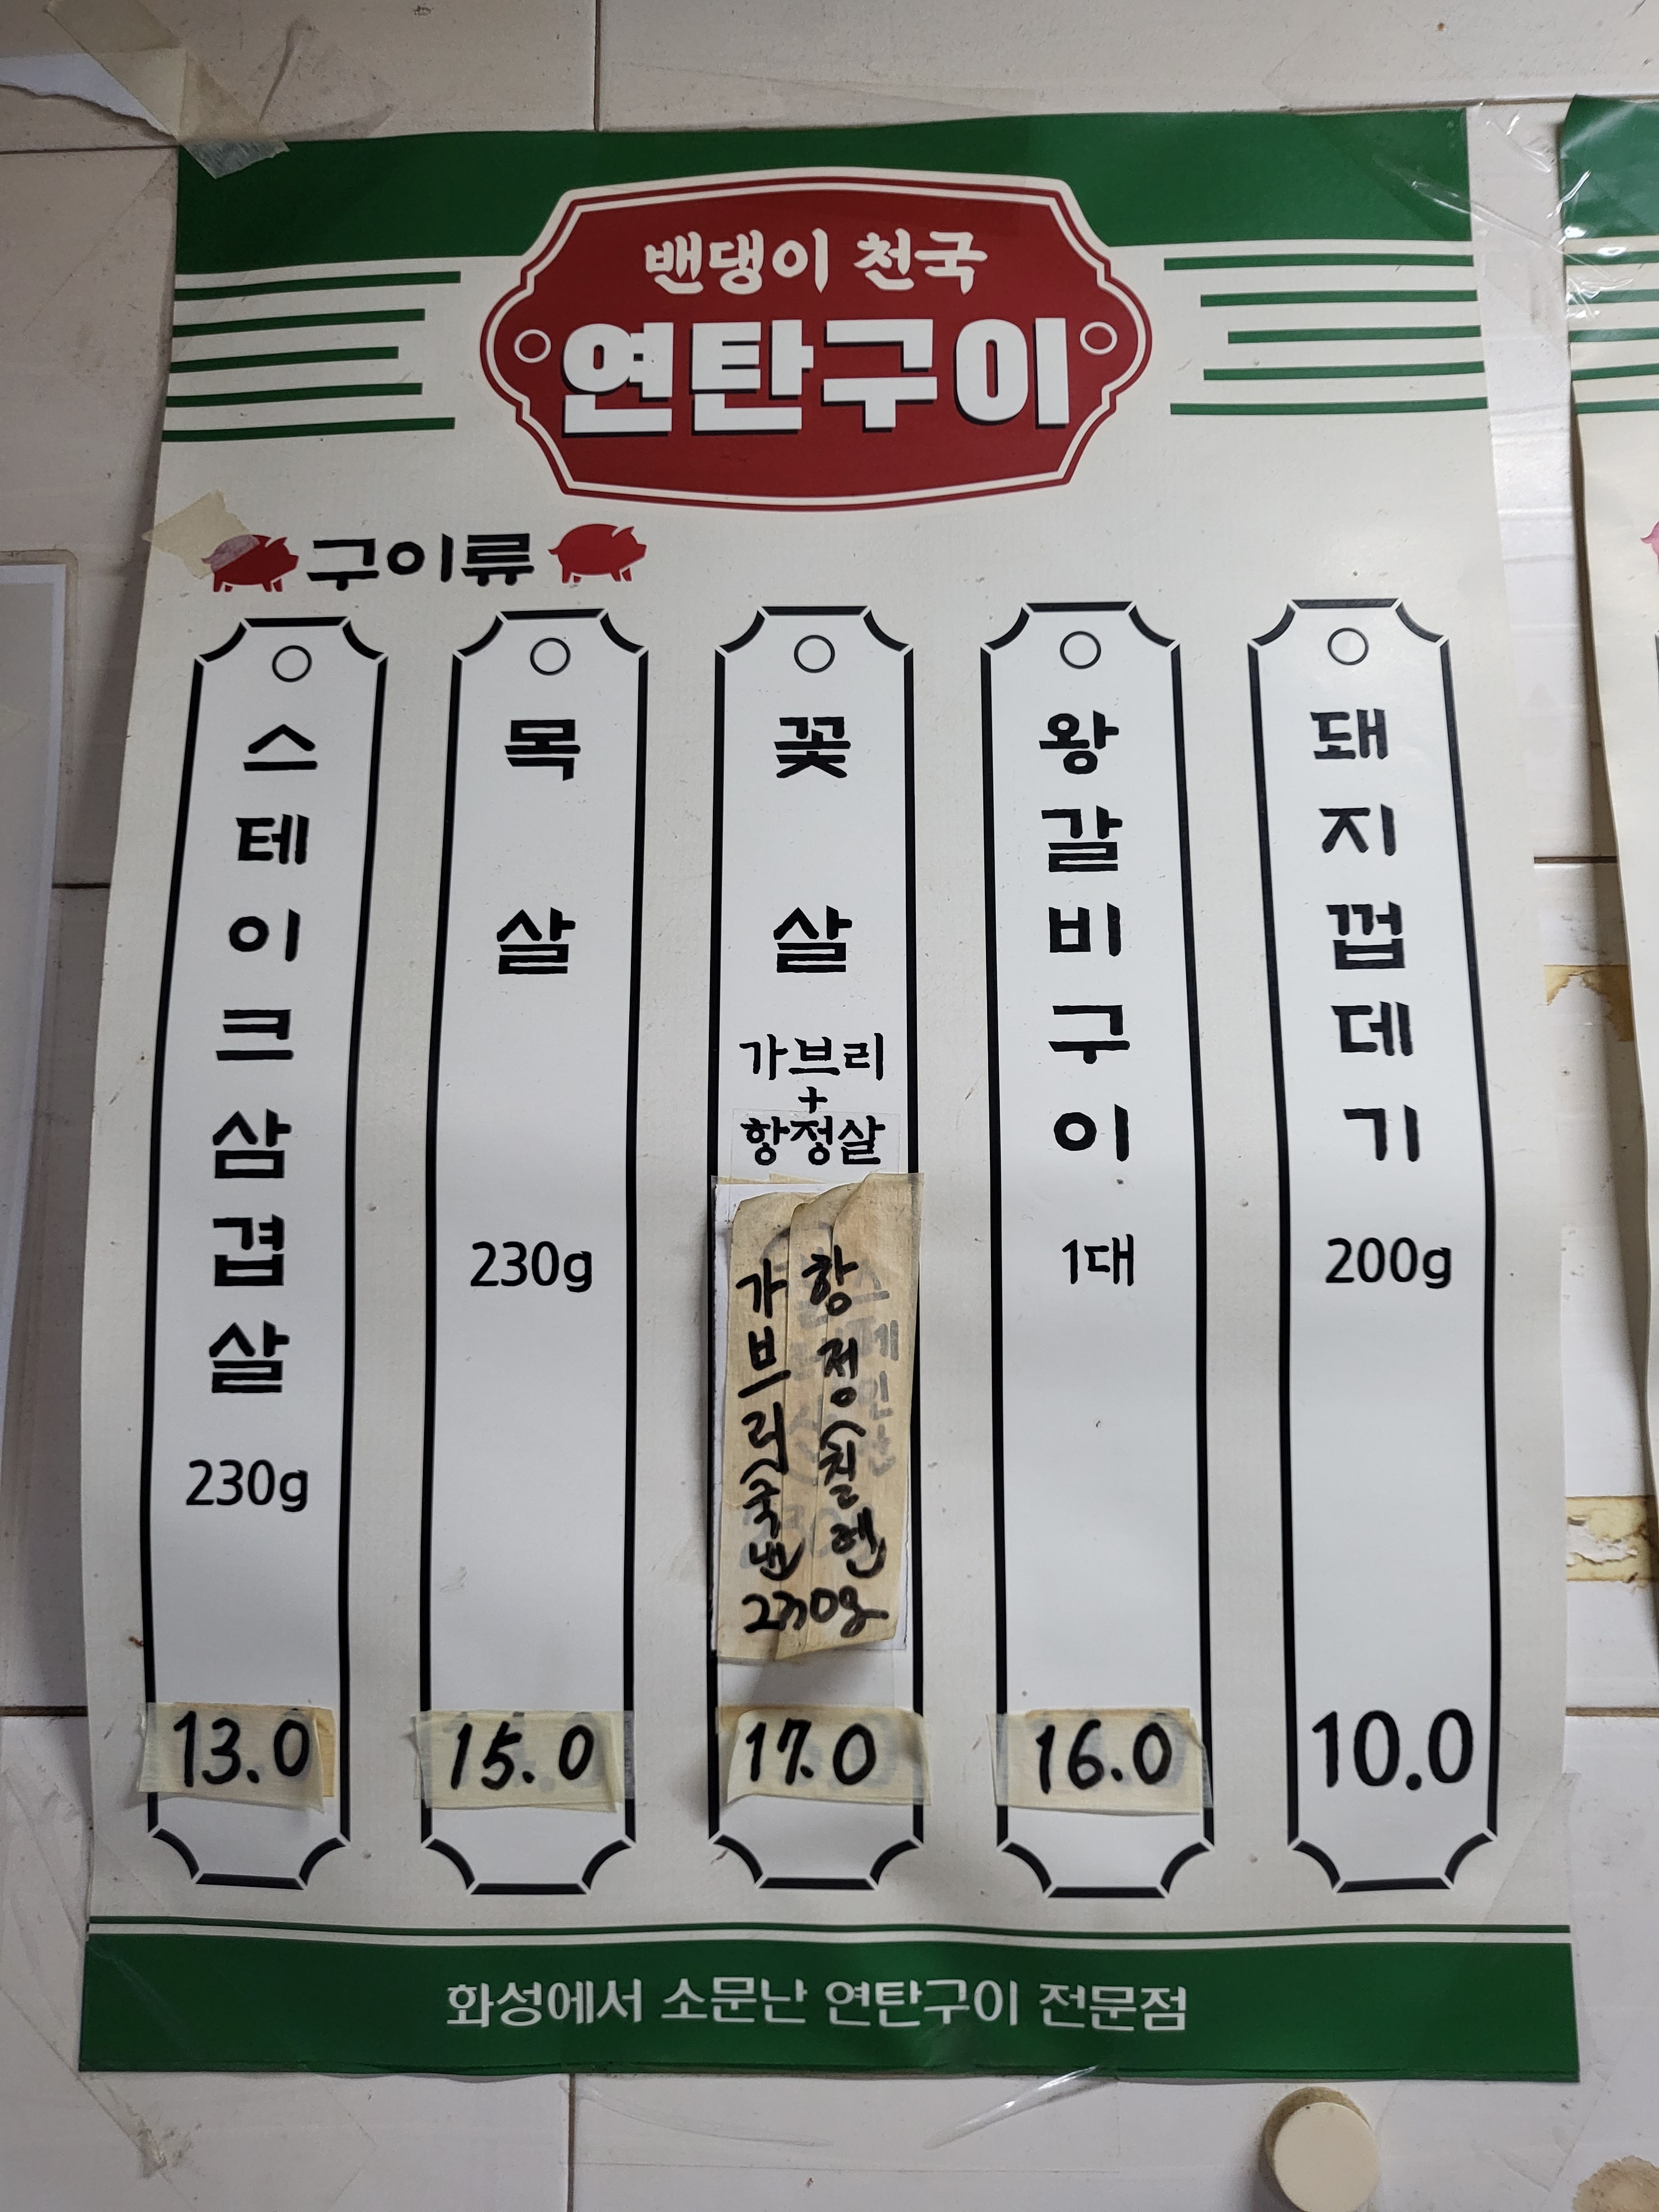 밴댕이 천국
연탄구이
구이류
스테이크삼겹살
230g
13.0
목살
230g
15.0
꽃살
가브리
+
항정살
항정(칠렌
가브리(국낸
230g
17.0
왕갈비구이
1대
16.0
돼지껍데기
200g
10.0
화성에서 소문난 연탄구이 전문점